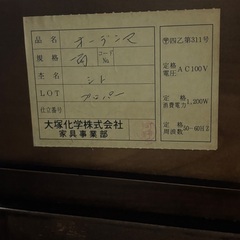 品名 オーデンス
規格
コード No.
本名 シト
LOT
仕立番号
大塚化学株式会社
家具事業部
〒四乙第311号
定格電圧 AC100V
定格消費電力 1,200W
定格周波数 50-60Hz